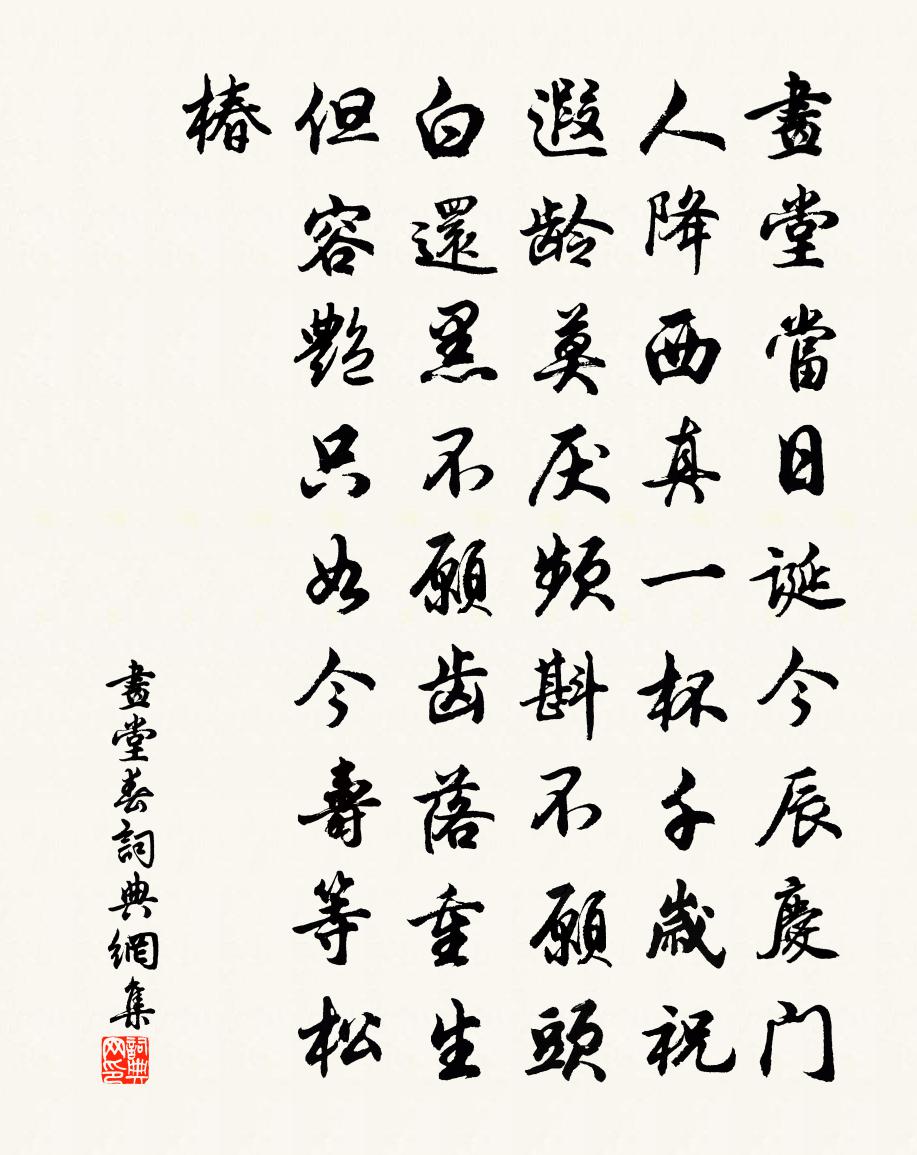 畫堂當日誕今辰慶门
人降西真一杯千歲祝
遐龄莫厌頻斟不願頭
白還黑不願齿落重生
但容艷只如今壽等松
椿
畫堂春詞典網集
詞典网印